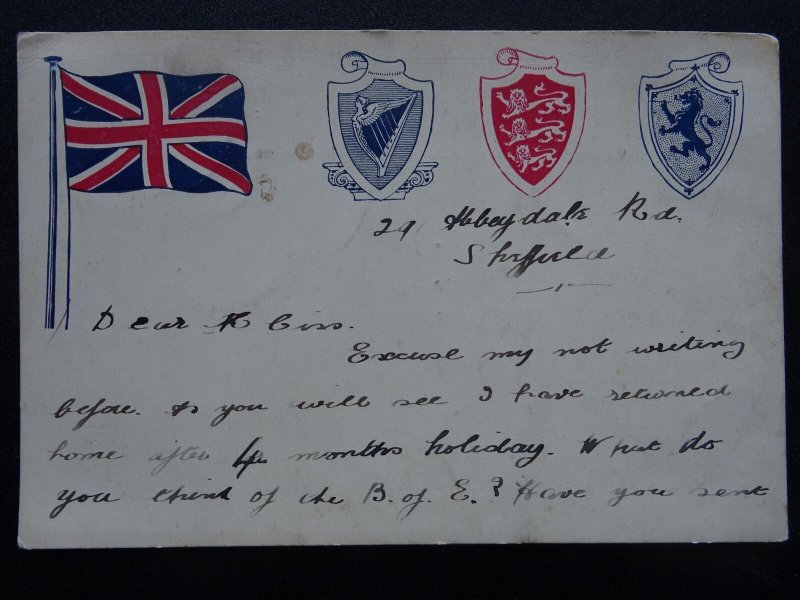 29 Abbeydale Rd.
Sheffield
Dear
Excuse my not writing
before. As you will see I have returned
home after 4 months holiday. What do
you think of the B. of E.? Have you sent